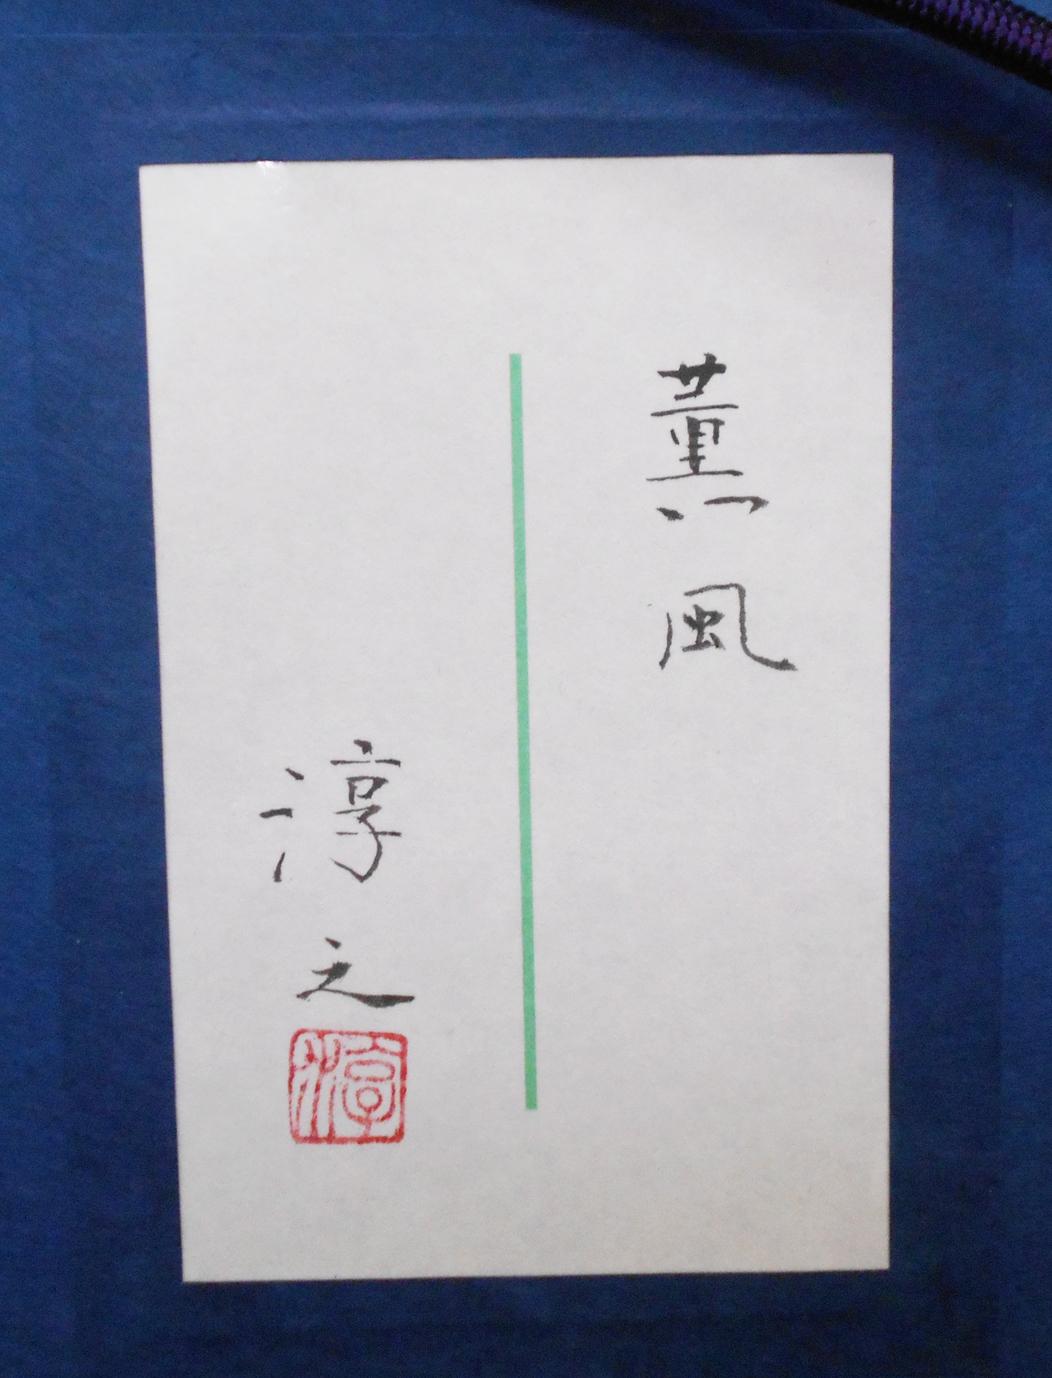 薫風
淳之
淳